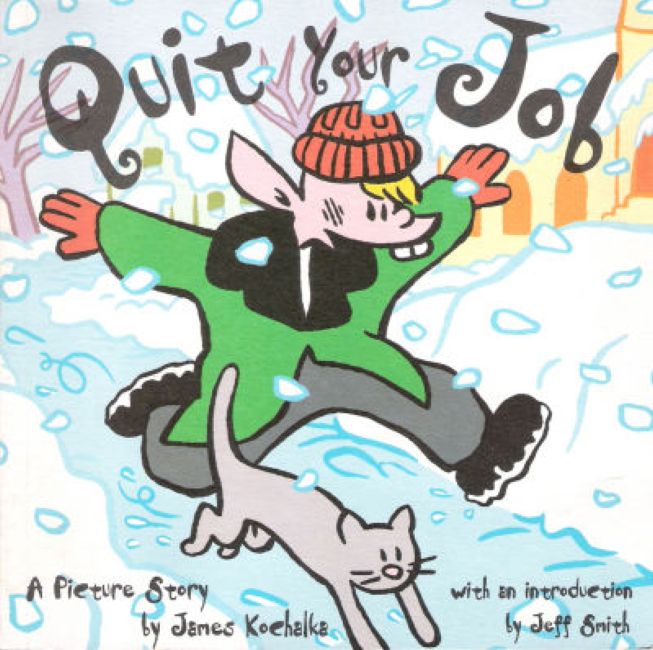 Quit Your Job
A Picture Story
by James Kochalka
with an introduction
by Jeff Smith